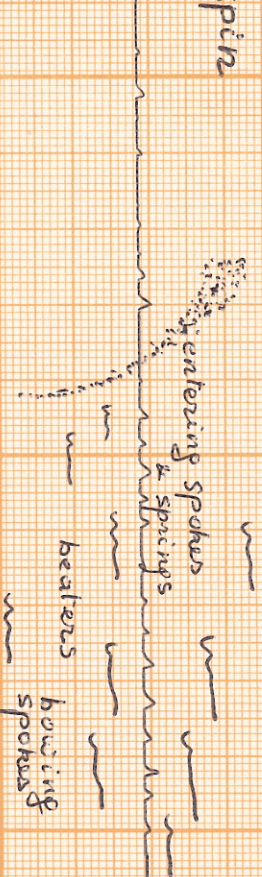 spin
entering spokes
& springs
beaters
bowing
spokes